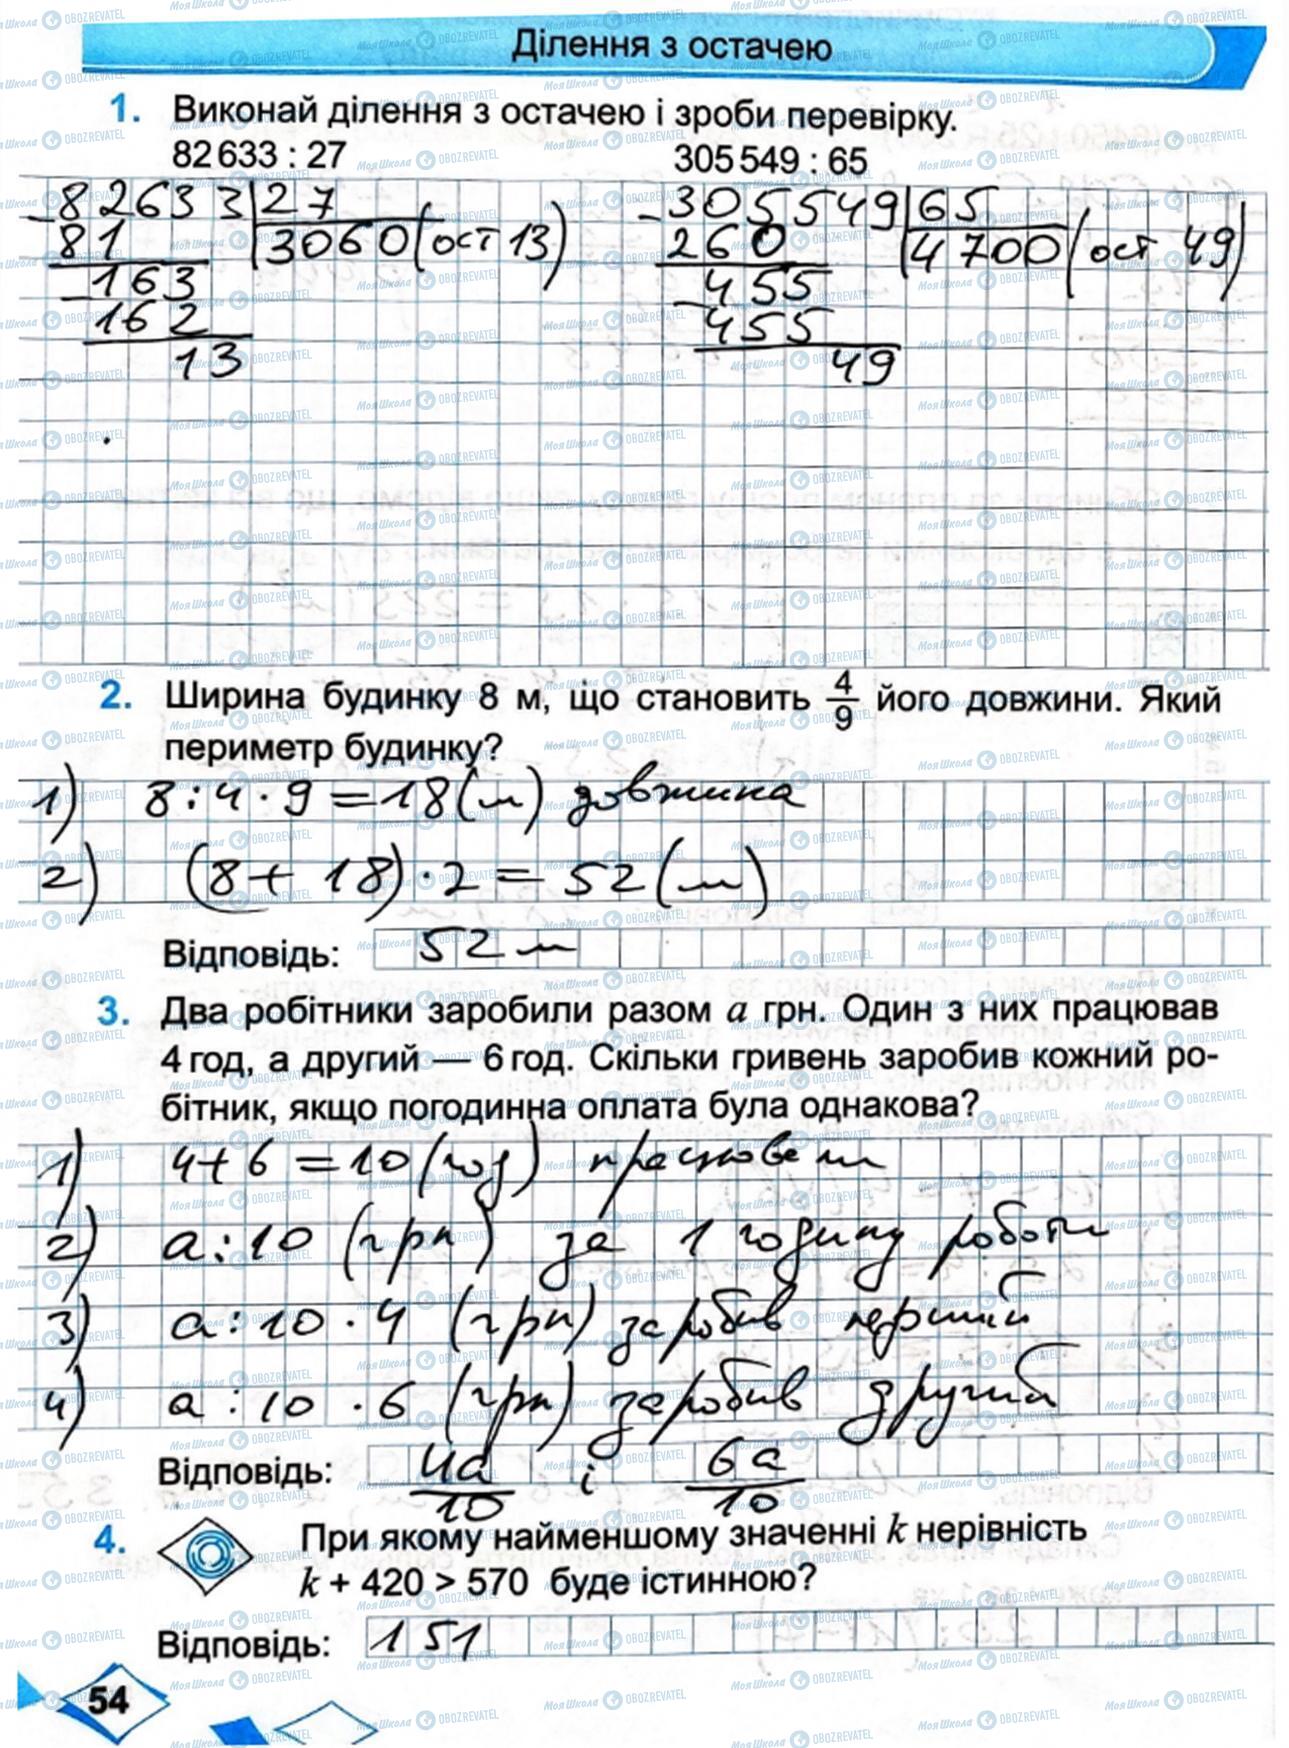 Ділення з остачею
1. Виконай ділення з остачею і зроби перевірку.
82 633 : 27
305 549 : 65
82633 27
81 3060 (ост 13)
163
162
13
305549 65
260 4700 (ост 49)
455
455
49
2. Ширина будинку 8 м, що становить 4/9 його довжини. Який
периметр будинку?
1) 8 : 4 · 9 = 18 (м) довжина
2) (8 + 18) · 2 = 52 (м)
Відповідь: 52 м
3. Два робітники заробили разом a грн. Один з них працював
4 год, а другий — 6 год. Скільки гривень заробив кожний ро-
бітник, якщо погодинна оплата була однакова?
1) 4 + 6 = 10 (год) працювали
2) a : 10 (грн) за 1 годину роботи
3) a : 10 · 4 (грн) заробив перший
4) a : 10 · 6 (грн) заробив другий
Відповідь: 4a/10 і 6a/10
4. При якому найменшому значенні k нерівність
k + 420 > 570 буде істинною?
Відповідь: 151
54
Моя Школа OBOZREVATEL